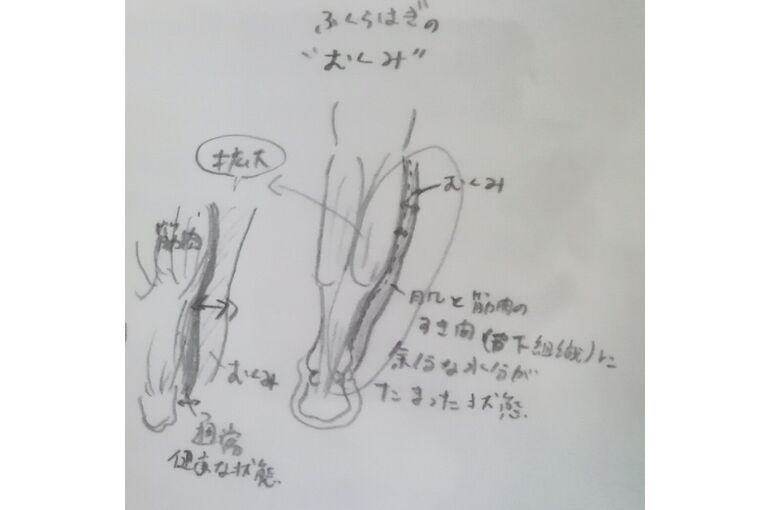 ふくらはぎの
"むくみ"
拡大
むくみ
筋肉
肌と筋肉の
すき間(皮下組織)に
余分な水分が
たまった状態
むくみ
通常
健康な状態